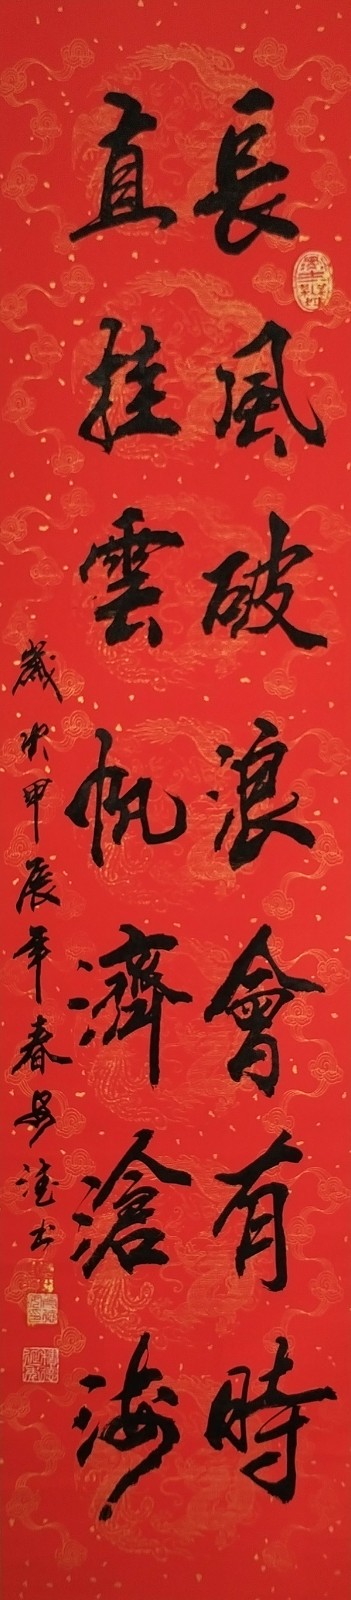 長風破浪會有時
直挂雲帆濟滄海
歲次甲辰年春